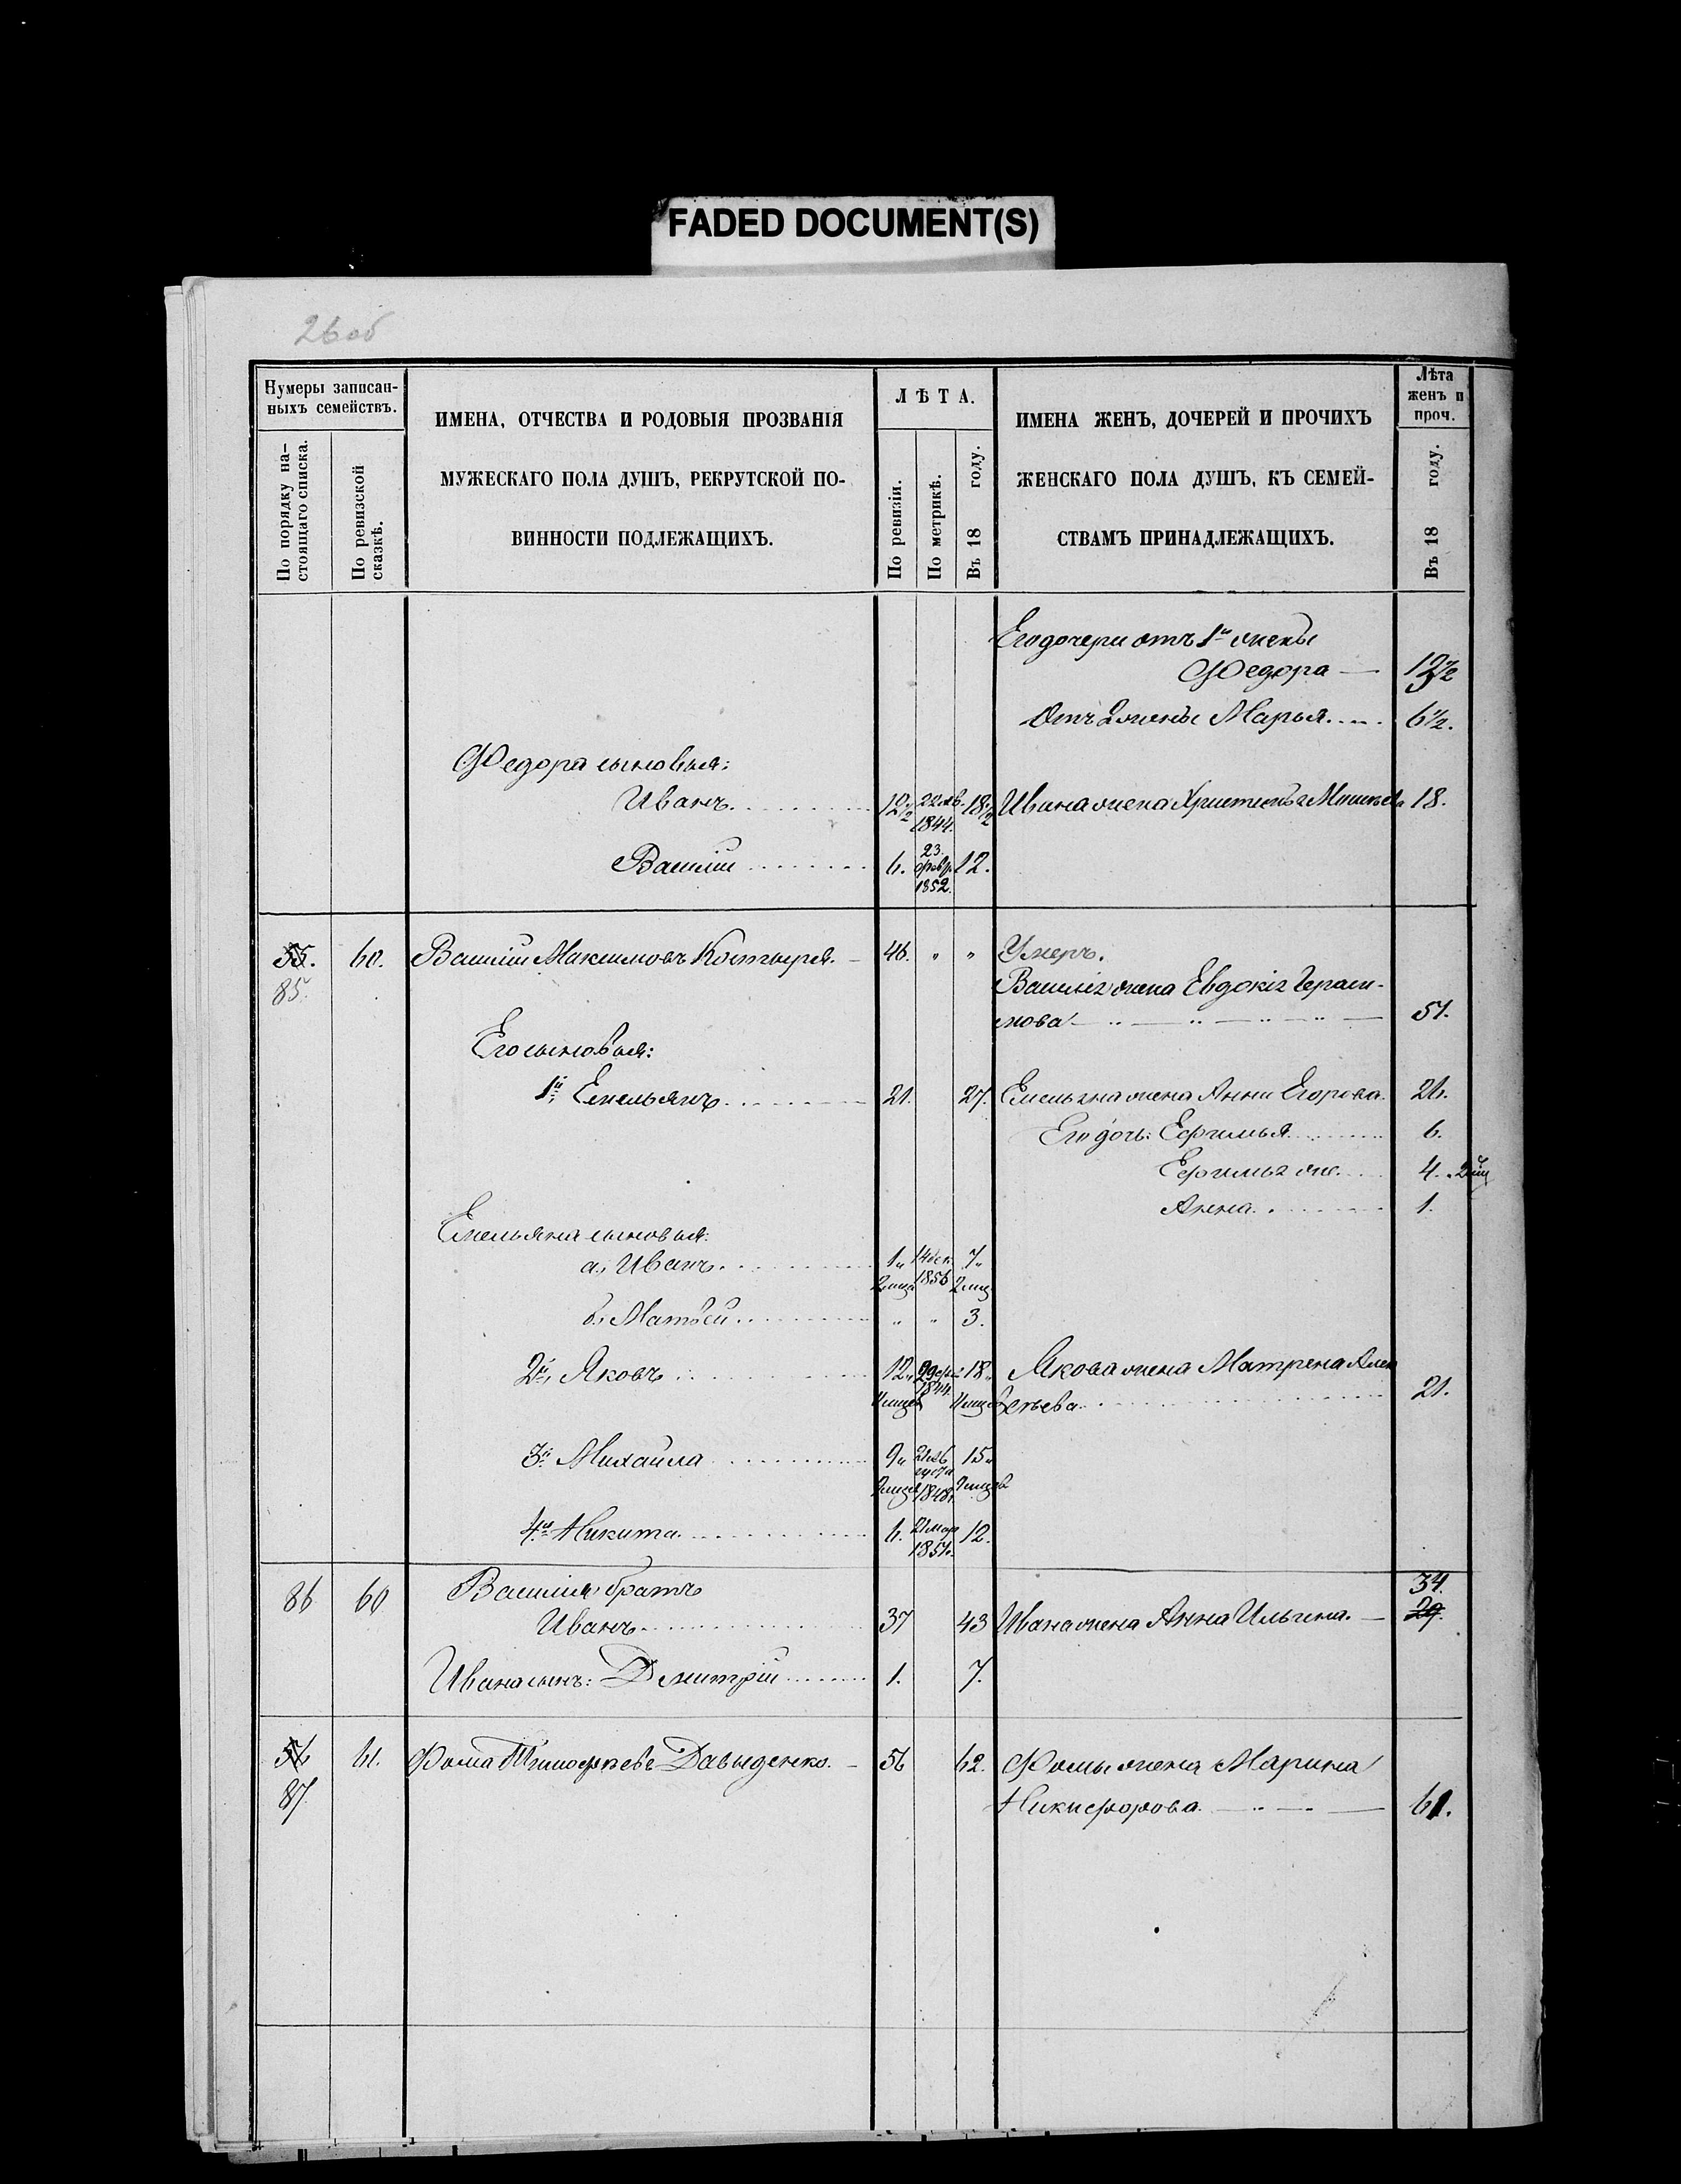 FADED DOCUMENT(S)
26 об
Нумеры записан-
ныхъ семействъ.
По порядку на-
стоящаго списка.
По ревизской
сказкѣ.
ИМЕНА, ОТЧЕСТВА И РОДОВЫЯ ПРОЗВАНІЯ
МУЖЕСКАГО ПОЛА ДУШЪ, РЕКРУТСКОЙ ПО-
ВИННОСТИ ПОДЛЕЖАЩИХЪ.
ЛѢТА.
По ревизіи.
По метрикѣ.
Въ 18 году.
ИМЕНА ЖЕНЪ, ДОЧЕРЕЙ И ПРОЧИХЪ
ЖЕНСКАГО ПОЛА ДУШЪ, КЪ СЕМЕЙ-
СТВАМЪ ПРИНАДЛЕЖАЩИХЪ.
Лѣта
женъ и
проч.
Въ 18 году.
Его дочери отъ 1й жены
Федора
Отъ 2 жены Марья 6½.
Федора сыновья:
Иванъ 12½ 22 1844. 18½ Ивана жена 18.
Василій 6. 23 февр. 1852. 12.
55. 60. Василій Максимовъ Костыря. 46. " " Умеръ.
85. Василія жена Евдокія Гераси-
мова 51.
Его сыновья:
1й Емельянъ 21. 27. Емельяна жена Анна Егорова. 26.
Его дочь: Ефимья 6.
Ефимья же 4.
Анна 1.
Емельяна сыновья:
а., Иванъ 1" 14 дек. 1856 7"
б., Матвей " " 3.
2й, Яковъ 12" 1844. 18" Якова жена Матрена Алек
сеева 21.
3й Михайла 9" 1848. 15"
4й Никита 6. 21 мар 1851. 12.
86 60 Василія братъ 34.
Иванъ 37 43 Ивана жена Анна Ильина. 29.
Ивана сынъ: Дмитрій 1. 7.
56 61. Фома Тимофѣевъ Давыденко. 56 62. Фомы жена Марина
87 Никифорова 61.